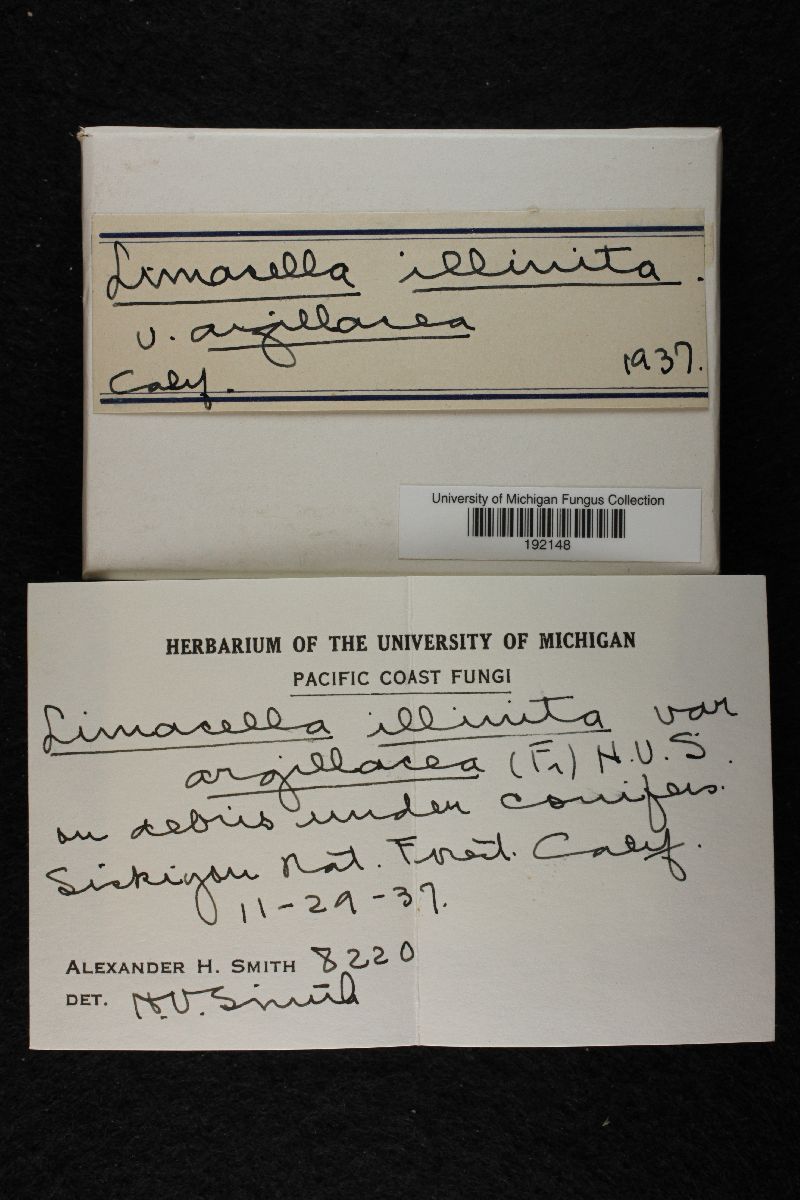 Limacella illinita.
v. argillacea
Calif. 1937.
University of Michigan Fungus Collection
192148
HERBARIUM OF THE UNIVERSITY OF MICHIGAN
PACIFIC COAST FUNGI
Limacella illinita var
argillacea (Fr) H.V.S.
on debris under conifers.
Siskiyou Nat. Forest. Calif.
11-29-37.
ALEXANDER H. SMITH 8220
DET. H.V. Smith